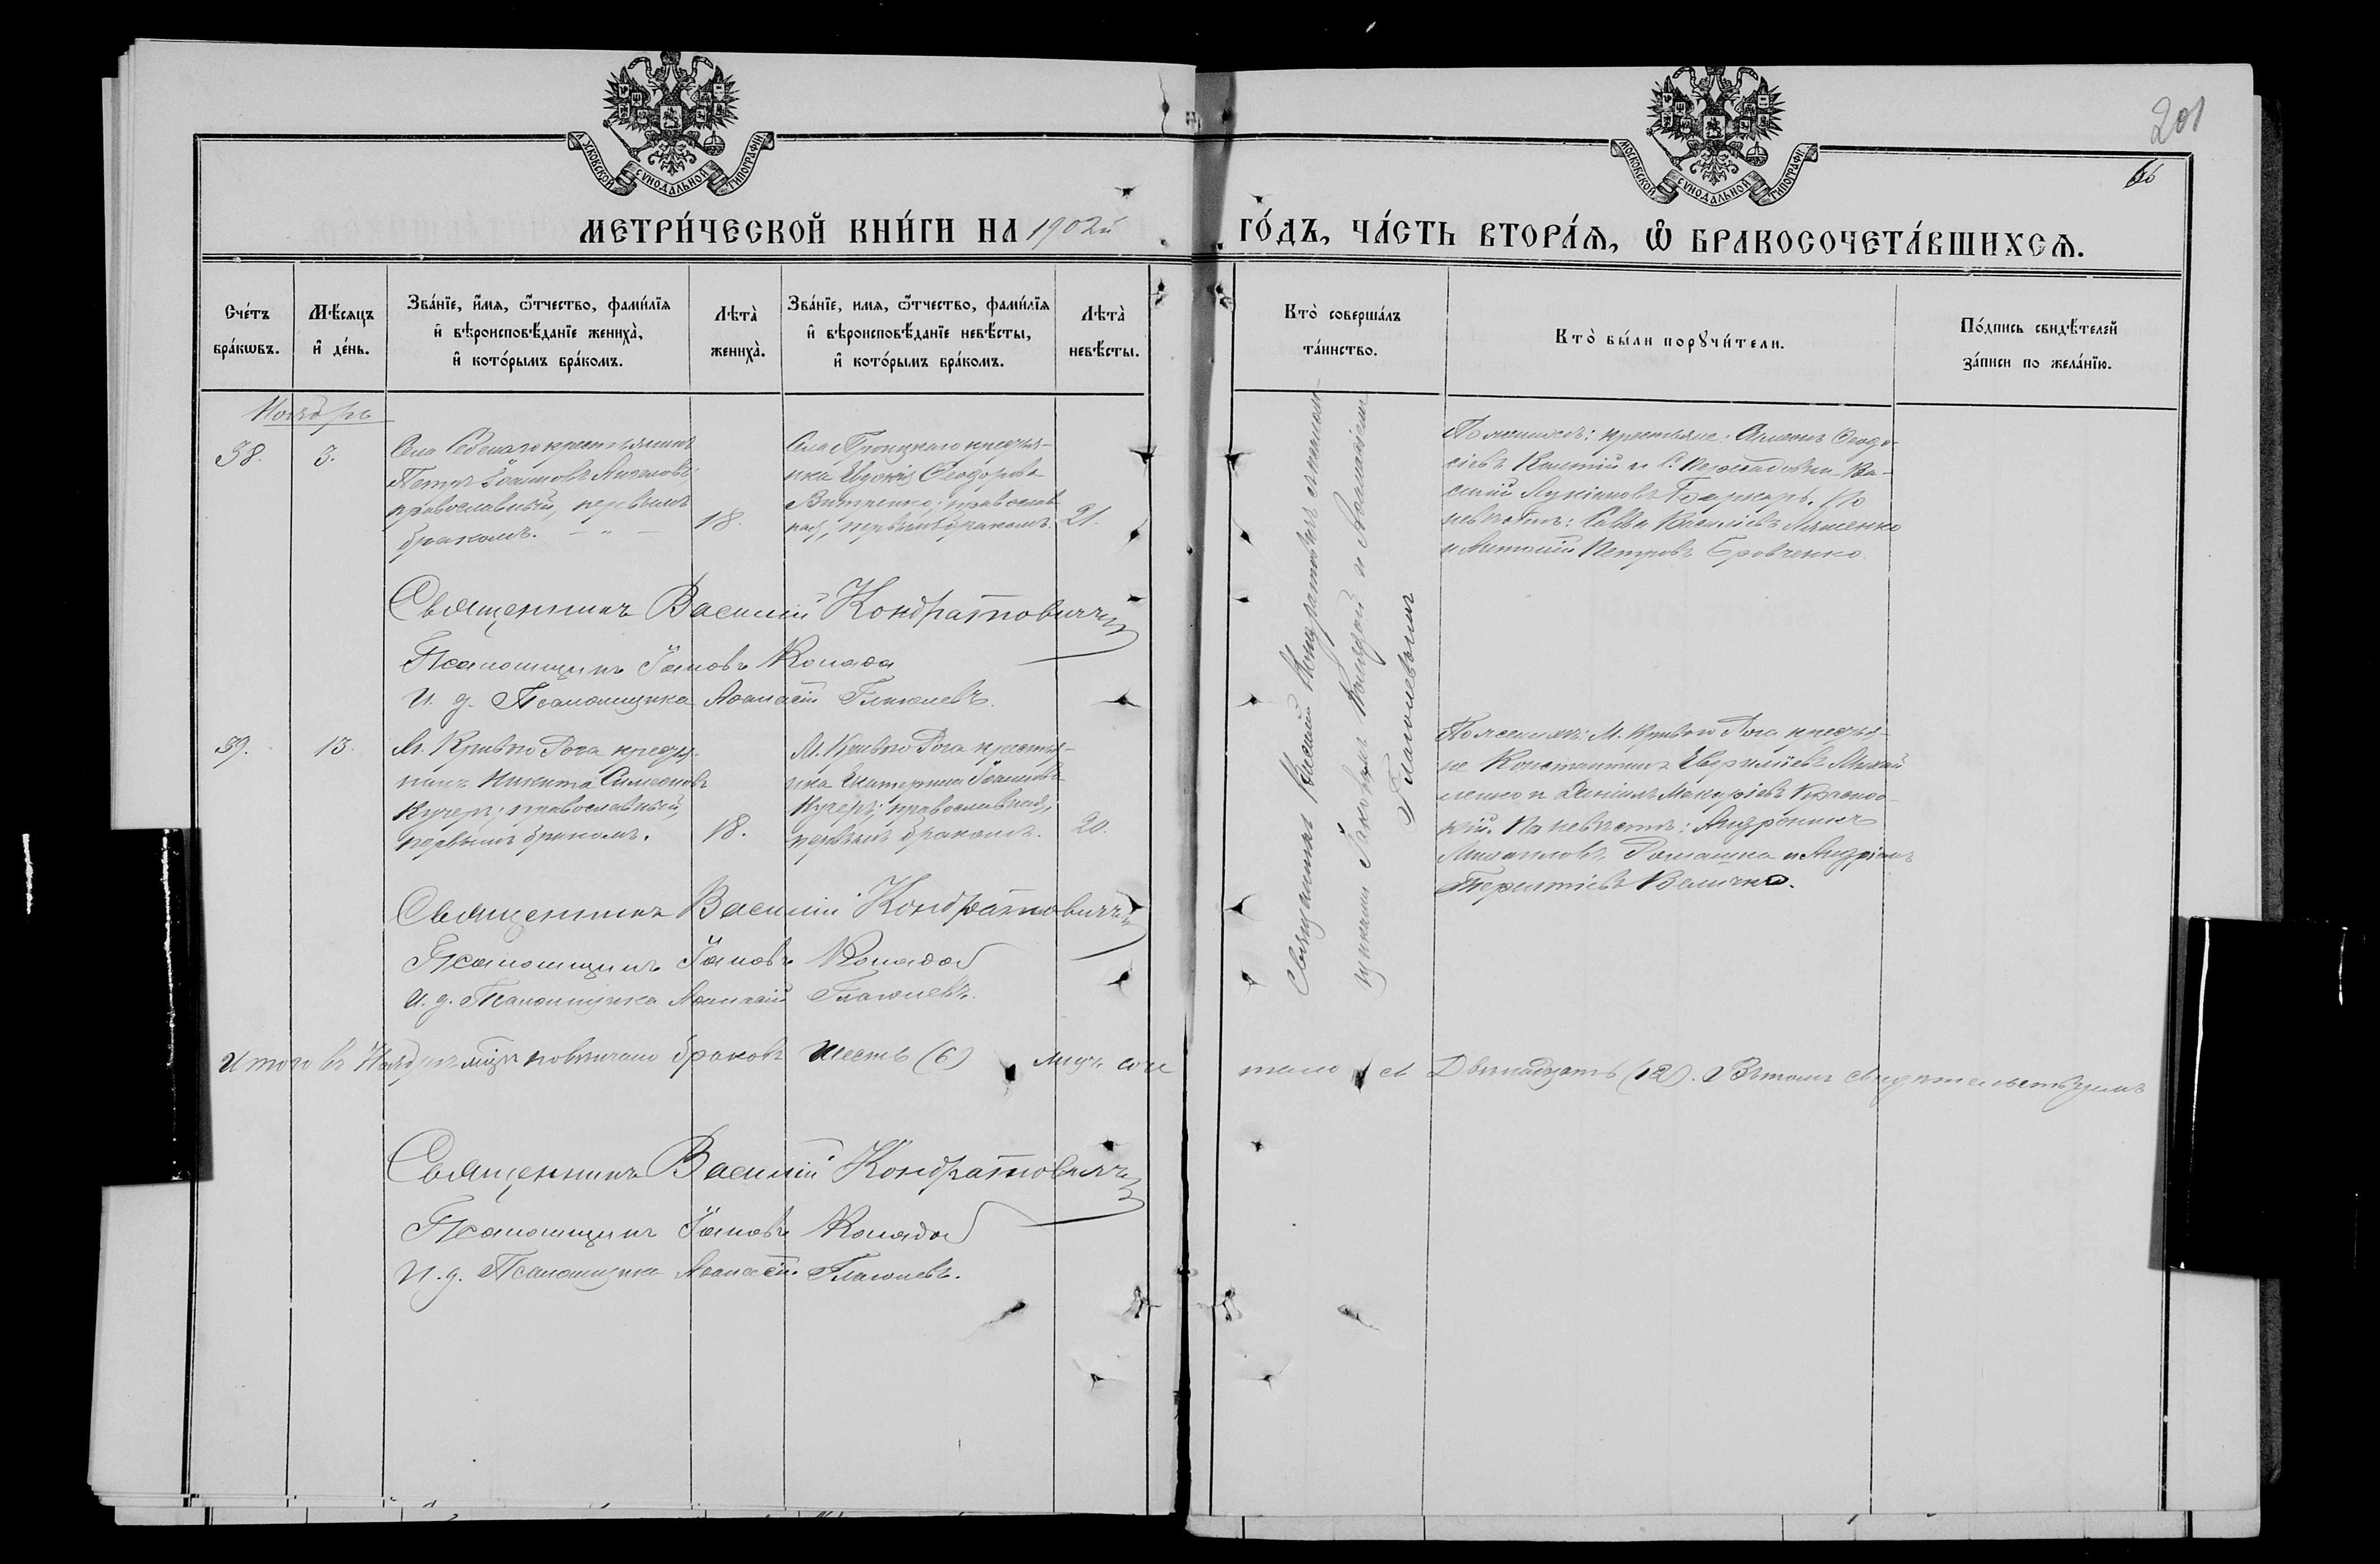 201
66
МОСКОВСКОЙ СѴНОДАЛЬНОЙ ТИПОГРАФІИ
МОСКОВСКОЙ СѴНОДАЛЬНОЙ ТИПОГРАФІИ
МЕТРИ́ЧЕСКОЙ КНИ́ГИ НА 1902й ГО́ДЪ, ЧА́СТЬ ВТОРА́Я, Ѽ БРАКОСОЧЕТА́ВШИХСЯ.
Сче́тъ бра́кωвъ.
Мѣ́сяцъ и҆ де́нь.
Зва́нїе, и҆́мя, ѻ҆́тчество, фами́лїя
и҆ вѣроисповѣ́данїе жениха̀,
и҆ кото́рымъ бра́комъ.
Лѣта̀ жениха̀.
Зва́нїе, имя, ѻ҆́тчество, фами́лїя
и҆ вѣроисповѣ́данїе невѣ́сты,
и҆ кото́рымъ бра́комъ.
Лѣта̀ невѣ́сты.
Кто̀ соверша́лъ та́инство.
Кто̀ бы́ли порꙋчи́тели.
По́дпись свидѣ́телей за́писи по жела́нїю.
Ноябрь
38.
3.
Села крестьянинъ
Петръ Іоанновъ
православный, первымъ
бракомъ. — „ —
18.
Села Троицкаго крестья-
нка Евдокія Ѳеодорова
православ
ная, первымъ бракомъ.
21.
По женихѣ: крестьяне: Симеонъ Ѳеодо-
сіевъ и с. Ва-
силій Лукіановъ По
невѣстѣ: Савва Василіевъ Ляшенко
и Антоній Петровъ Бровченко.
Священникъ Василій Кондратовичъ
Псаломщикъ Іаковъ Коляда
И. д. Псаломщика Аѳанасій
39.
13.
М. Кривого Рога крестья-
нинъ Никита Симеоновъ
Кучеръ; православный,
первымъ бракомъ.
18.
М. Кривого Рога крестья-
нка Екатерина Іоаннова
Кучеръ; православная,
первымъ бракомъ.
20.
По женихѣ: М. Кривого Рога крестья-
не Константинъ Михай
ленко и Даніилъ Макаріевъ
кій. По невѣстѣ: Андроникъ
Михаиловъ Ромашка и Андріанъ
Терентіевъ Величко.
Священникъ Василій Кондратовичъ съ псалом-
щиками Іаковомъ Колядой и Аѳанасіемъ
Священникъ Василій Кондратовичъ
Псаломщикъ Іаковъ Коляда
И. д. Псаломщика Аѳанасій
Итого въ Ноябрѣ мцѣ повѣнчано браковъ Шесть (6) лицъ соче талось Двѣнадцать (12). Въ томъ свидѣтельствуемъ
Священникъ Василій Кондратовичъ
Псаломщикъ Іаковъ Коляда
И. д. Псаломщика Аѳанасій